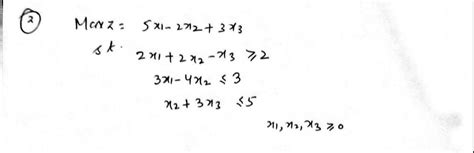 ② Max Z = 5x1 - 2x2 + 3x3
s t.
2x1 + 2x2 - x3 ≥ 2
3x1 - 4x2 ≤ 3
x2 + 3x3 ≤ 5
x1, x2, x3 ≥ 0